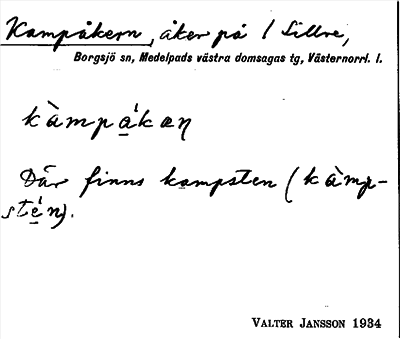 Kampåkern, åker på 1 Sillre,
Borgsjö sn, Medelpads västra domsagas tg, Västernorrl. l.
kàmpȧ́kæṇ
Där finns kampsten (kàmp-
stẹ́n).
VALTER JANSSON 1934